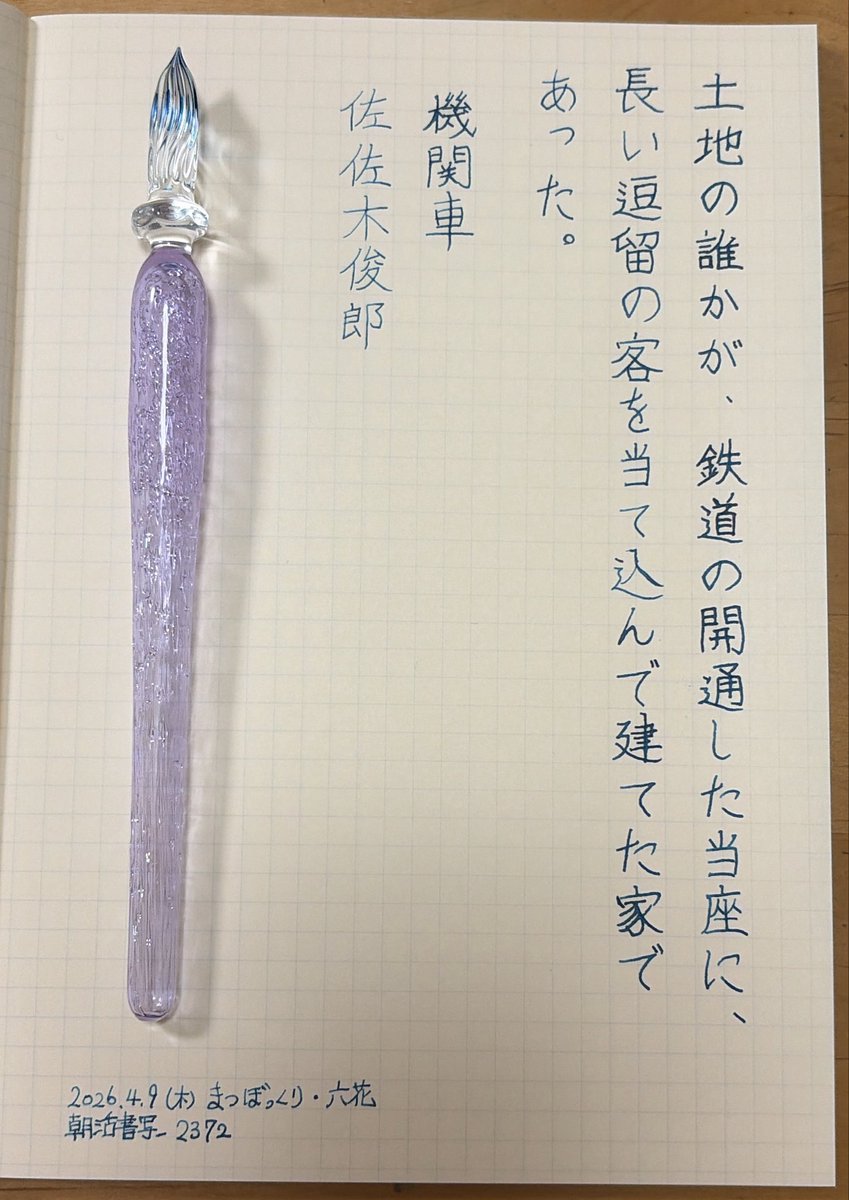 土地の誰かが、鉄道の開通した当座に、
長い逗留の客を当て込んで建てた家で
あった。
機関車
佐佐木俊郎
2026.4.9(木) まつぼっくり・六花
朝活書写_2372